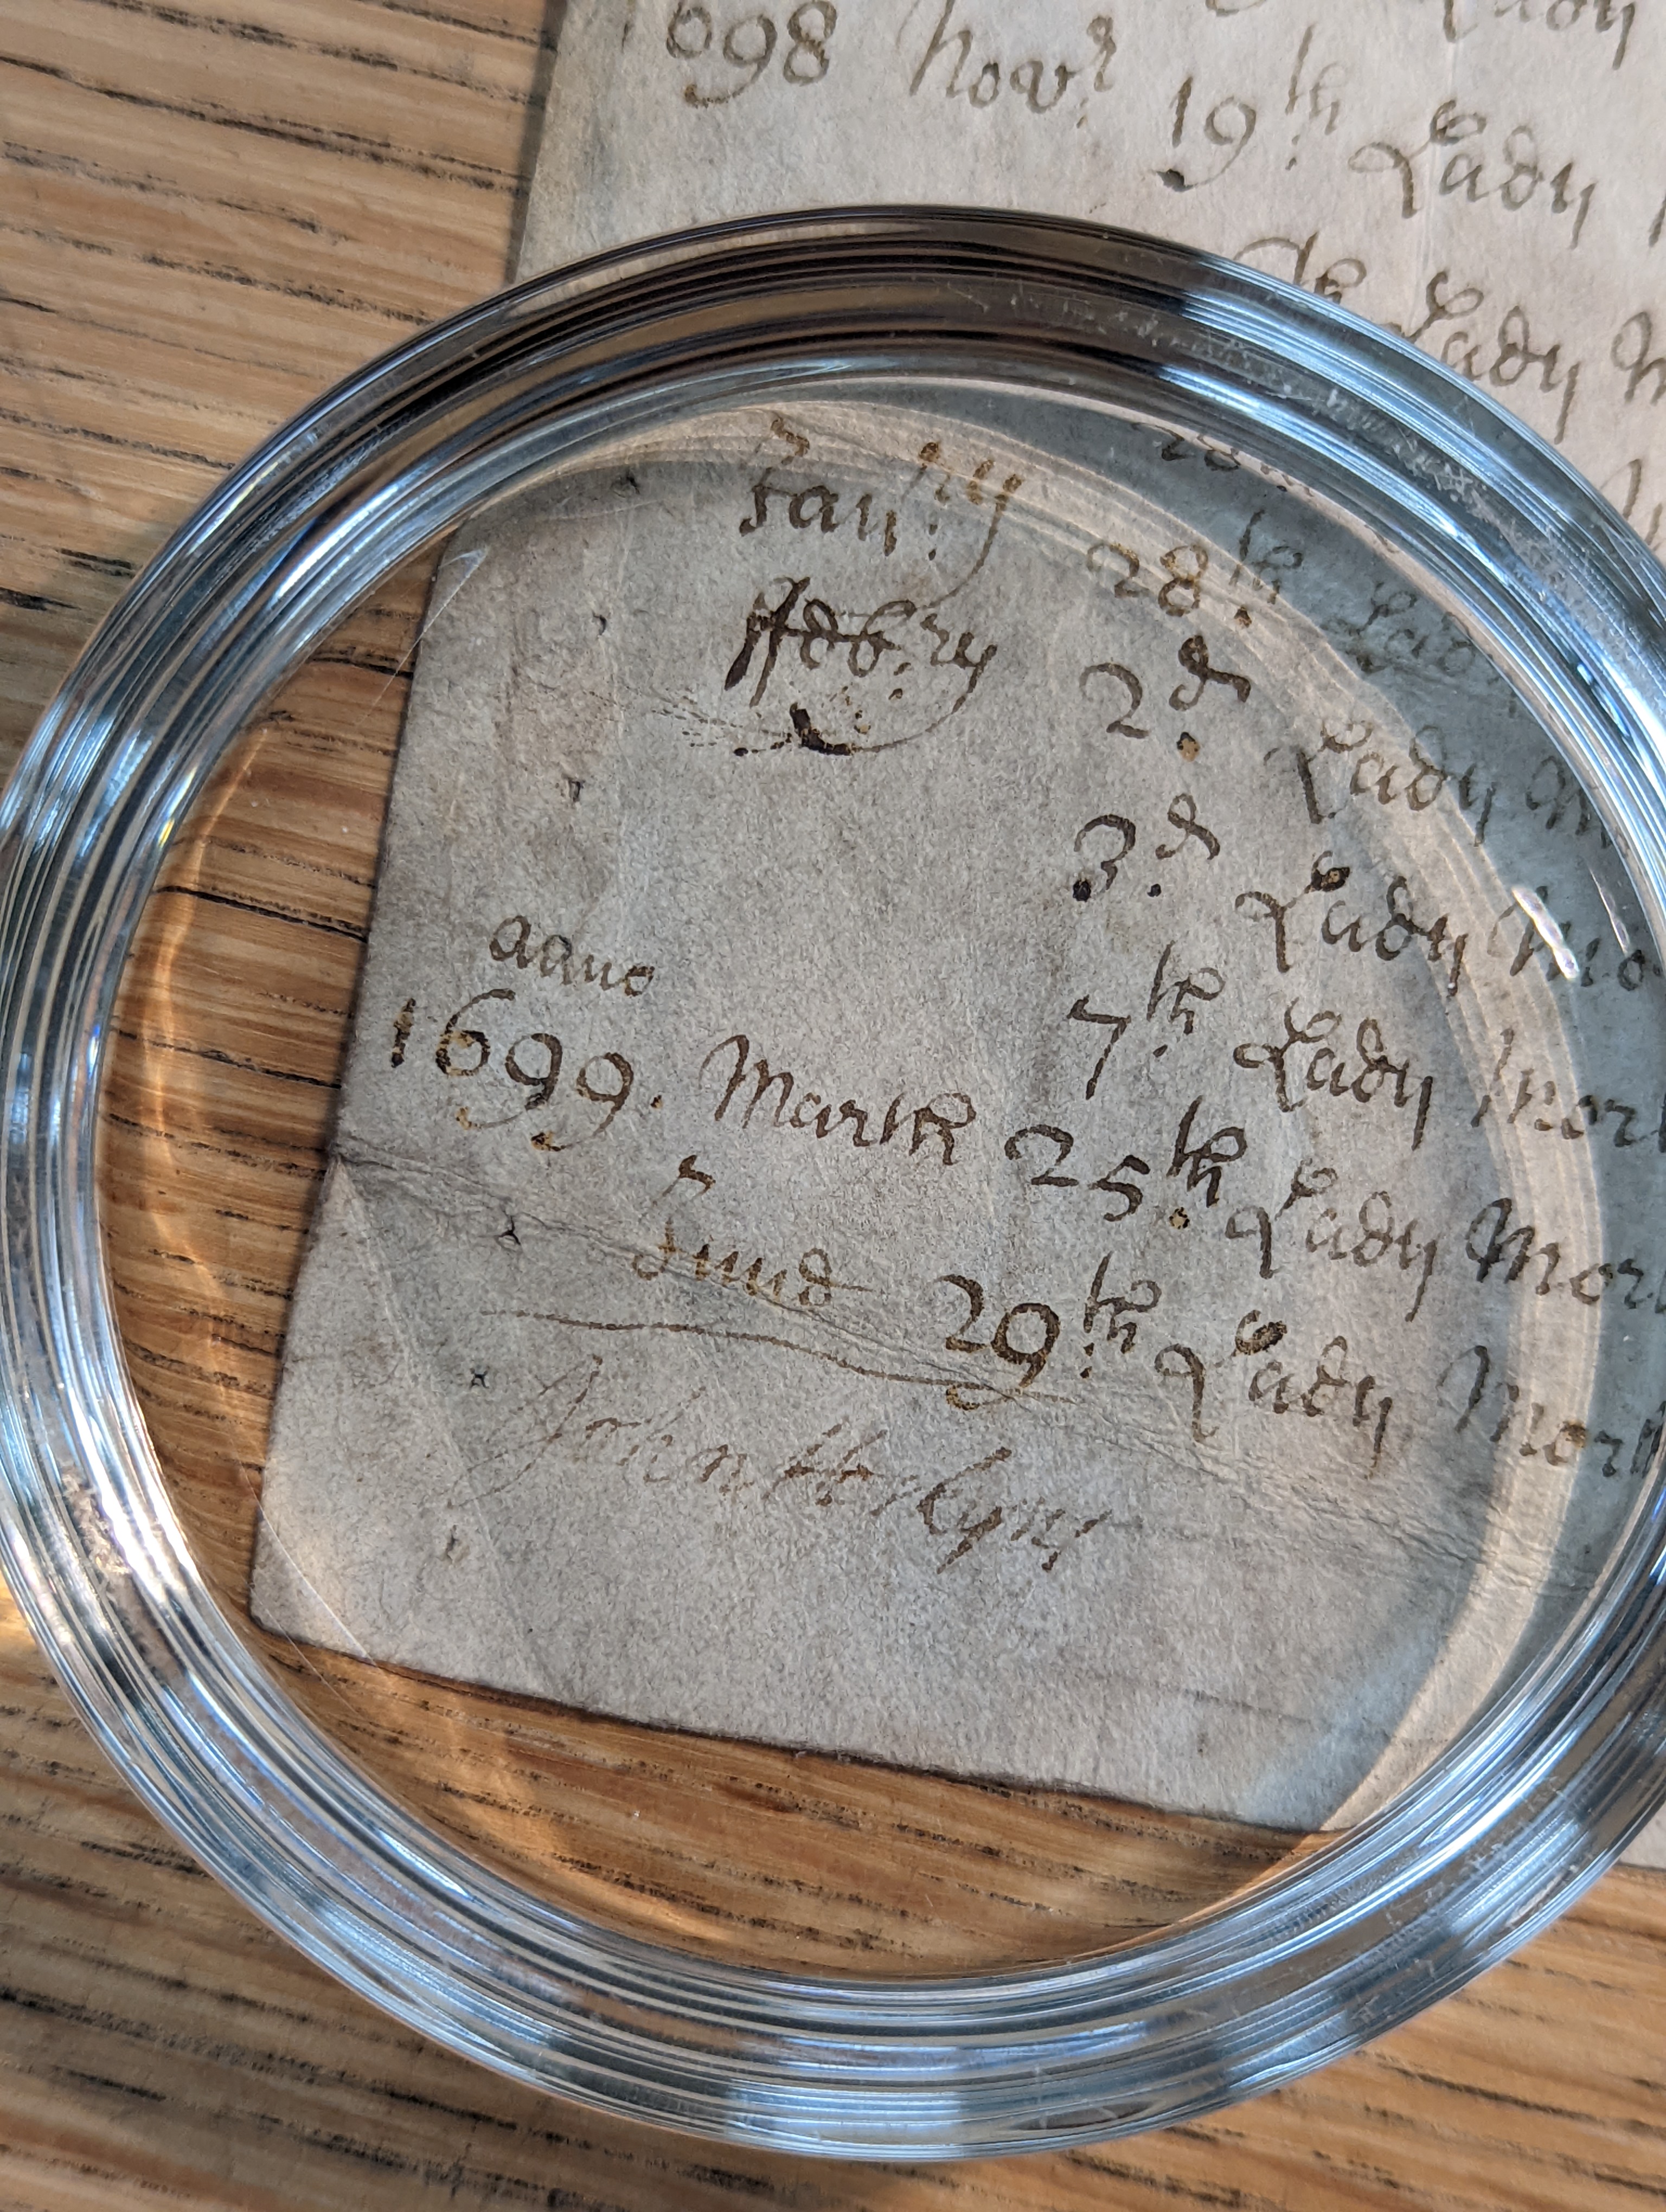 Lady
1698 Novr 19th Lady
th Lady M
28
Janry 28th Lad
ffebry 2d Lady M
3d Lady Mo
7th Lady Mor
anno
1699. March 25th Lady Mor
June 29th Lady Mor
John